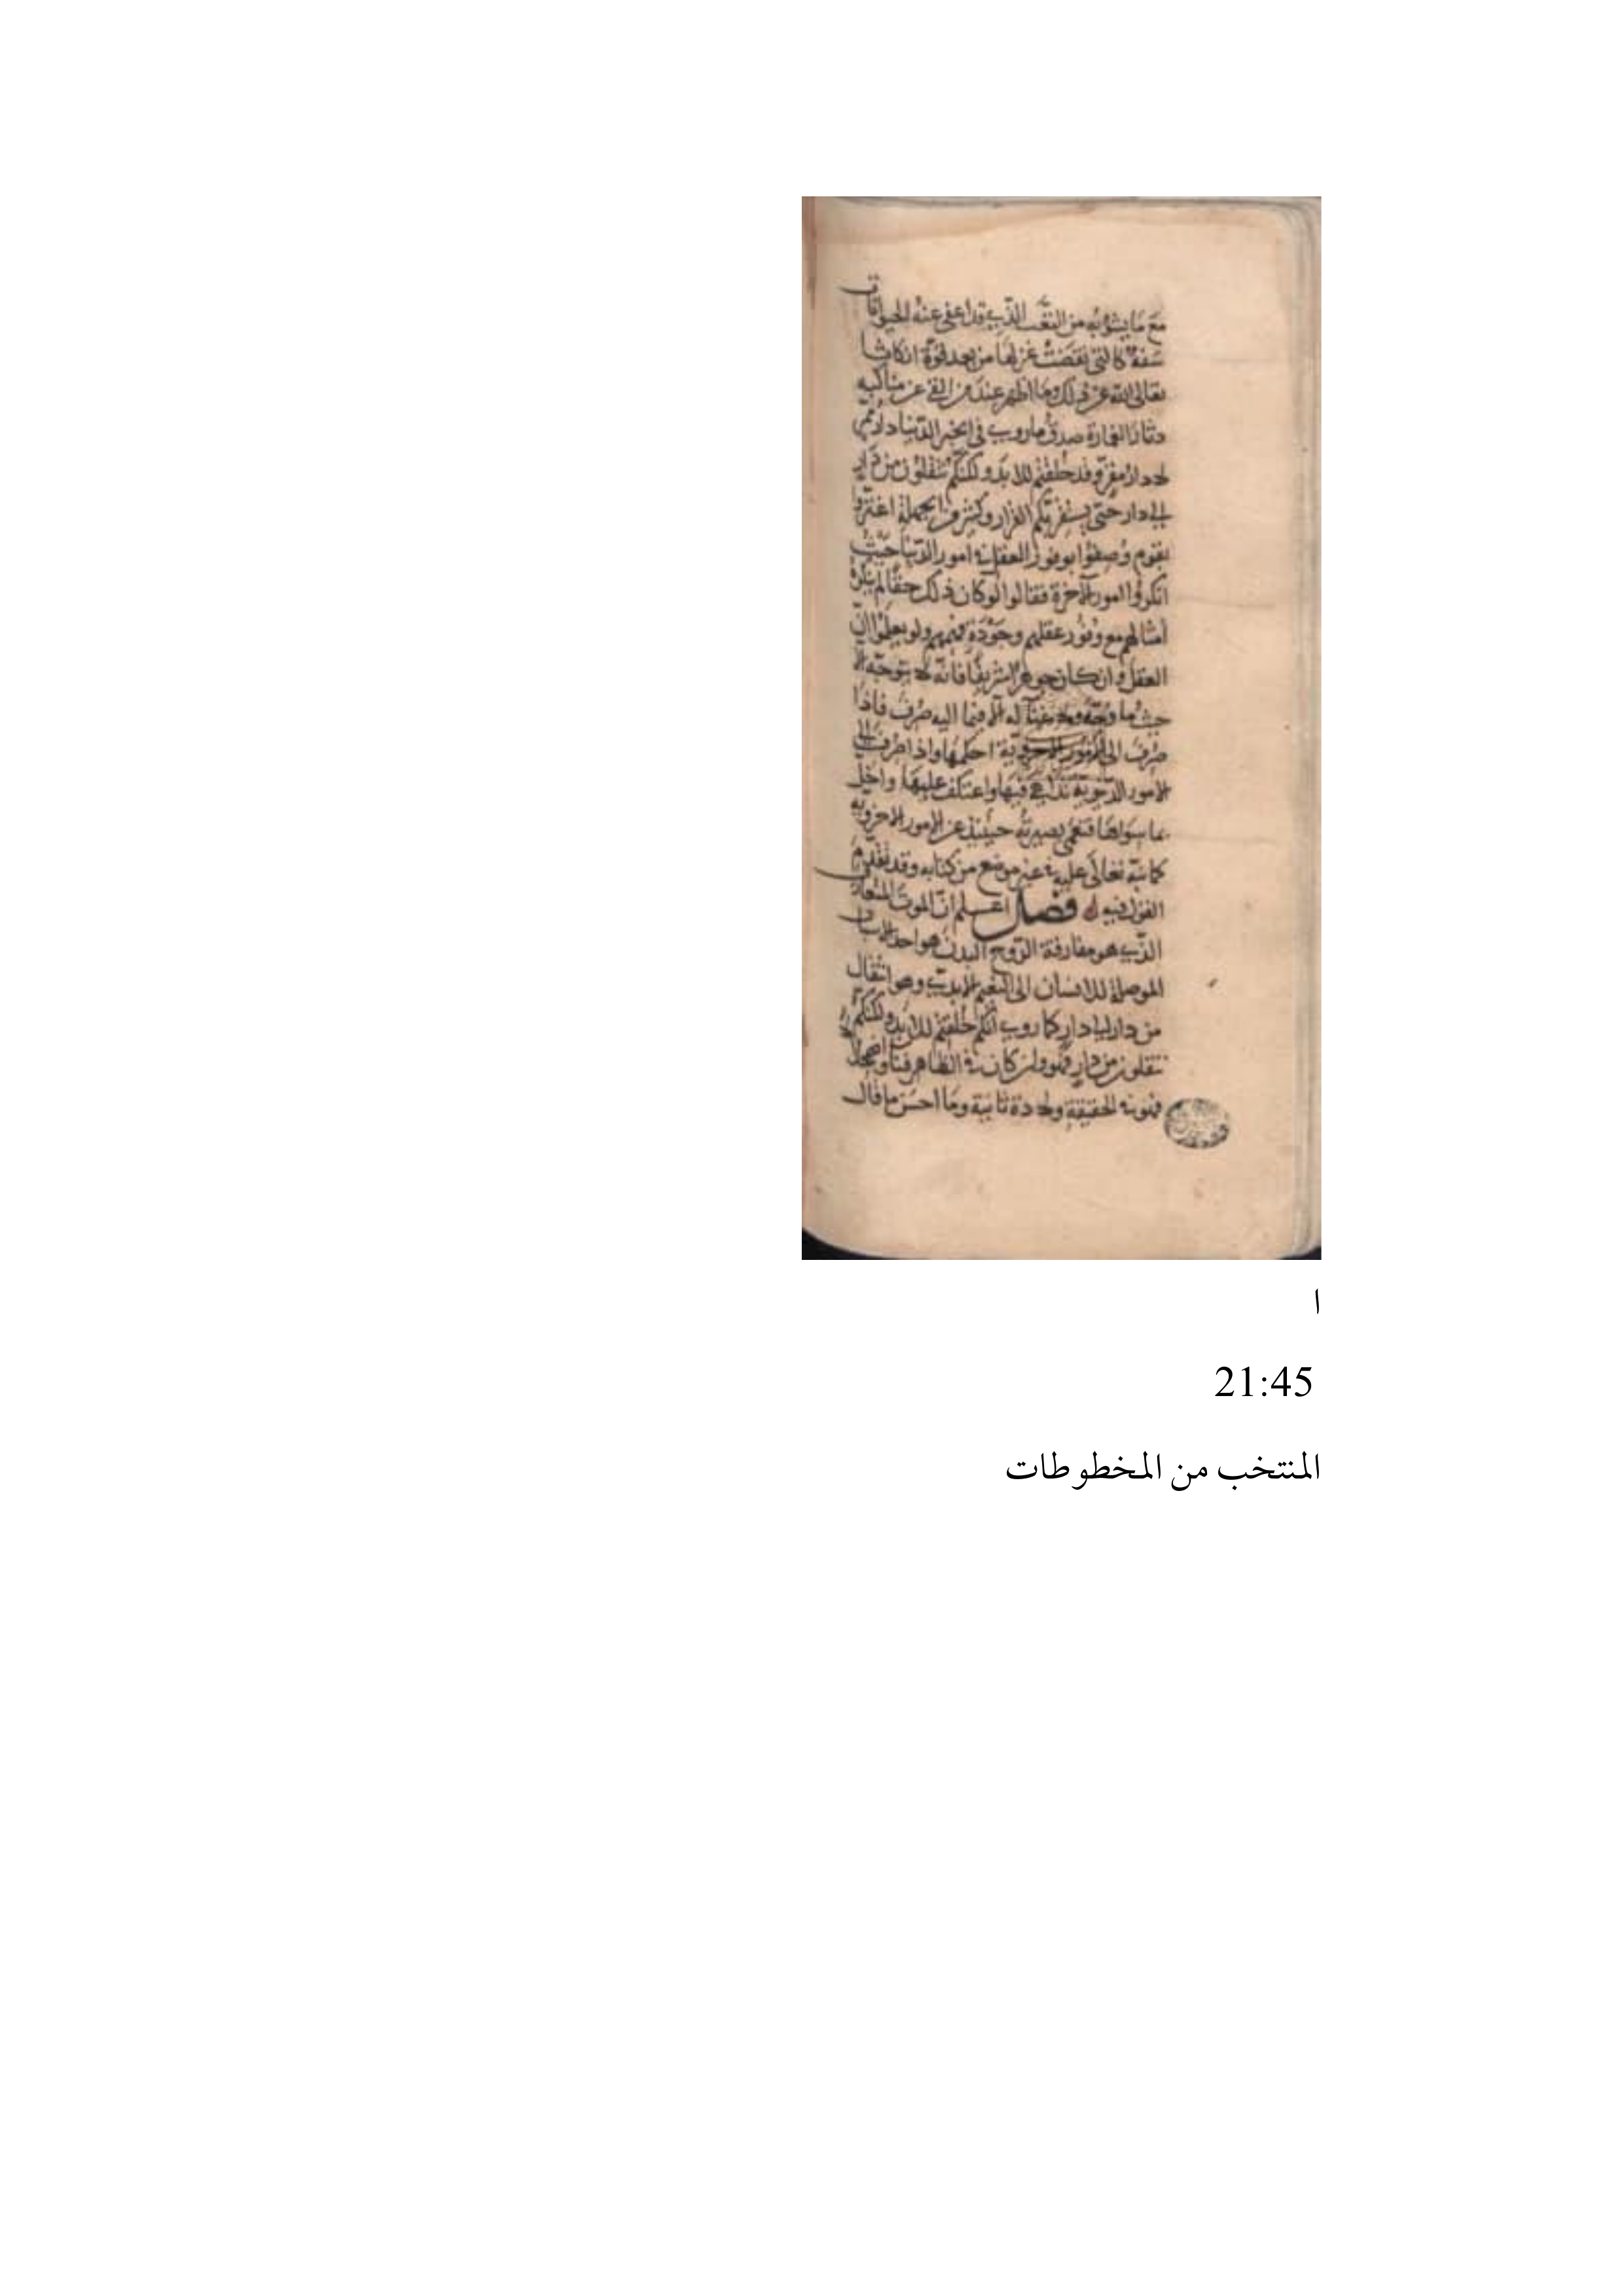 مع ما يشوبه من التعب الذي قد اعفى عنه الحيوانات
سفه كالتي نقضت غزلها من بعد قوة انكاثا
تعالى الله عن ذلك وما اظهر عند من القى عن مناكبه
دثار الغمارة صدق ما روي في الخبر الدنيا دار ممر
لا دار مقر وقد خلقتم للابد ولكنكم تنقلون من دار
الى دار حتى يستقر بكم القرار وكثير من الجهلة اغتروا
بقوم وصفوا بوفور العقل في امور الدنيا حيث
انكروا امور الآخرة فقالوا لو كان ذلك حقا لم ينكره
امثالهم مع وفور عقلهم وجودة فهمهم ولم يعلموا ان
العقل وان كان جوهرا شريفا فانه لا يتوجه الا
حيث ما وجه ولا غناء له الا فيما اليه صرف فاذا
صرف الى الامور الاخروية احكمها واذا صرف الى
الامور الدنيوية فيها واعتكف عليها واخل
بما سواها فتعمى بصيرته حينئذ عن الامور الاخروية
كما نبه تعالى عليه في غير موضع من كتابه وقد تقدم
القول فيه فصل اعلم ان الموت المتعارف
الذي هو مفارقة الروح البدن هو احد الاسباب
الموصلة للانسان الى النعيم الابدي وهو انتقال
من دار الى دار كما روي انكم خلقتم للابد ولكنكم
تنقلون من دار فهو وان كان في الظاهر فناء واضمحلالا
فهو في الحقيقة ولادة ثانية وما احسن ما قال
ا
21:45
المنتخب من المخطوطات